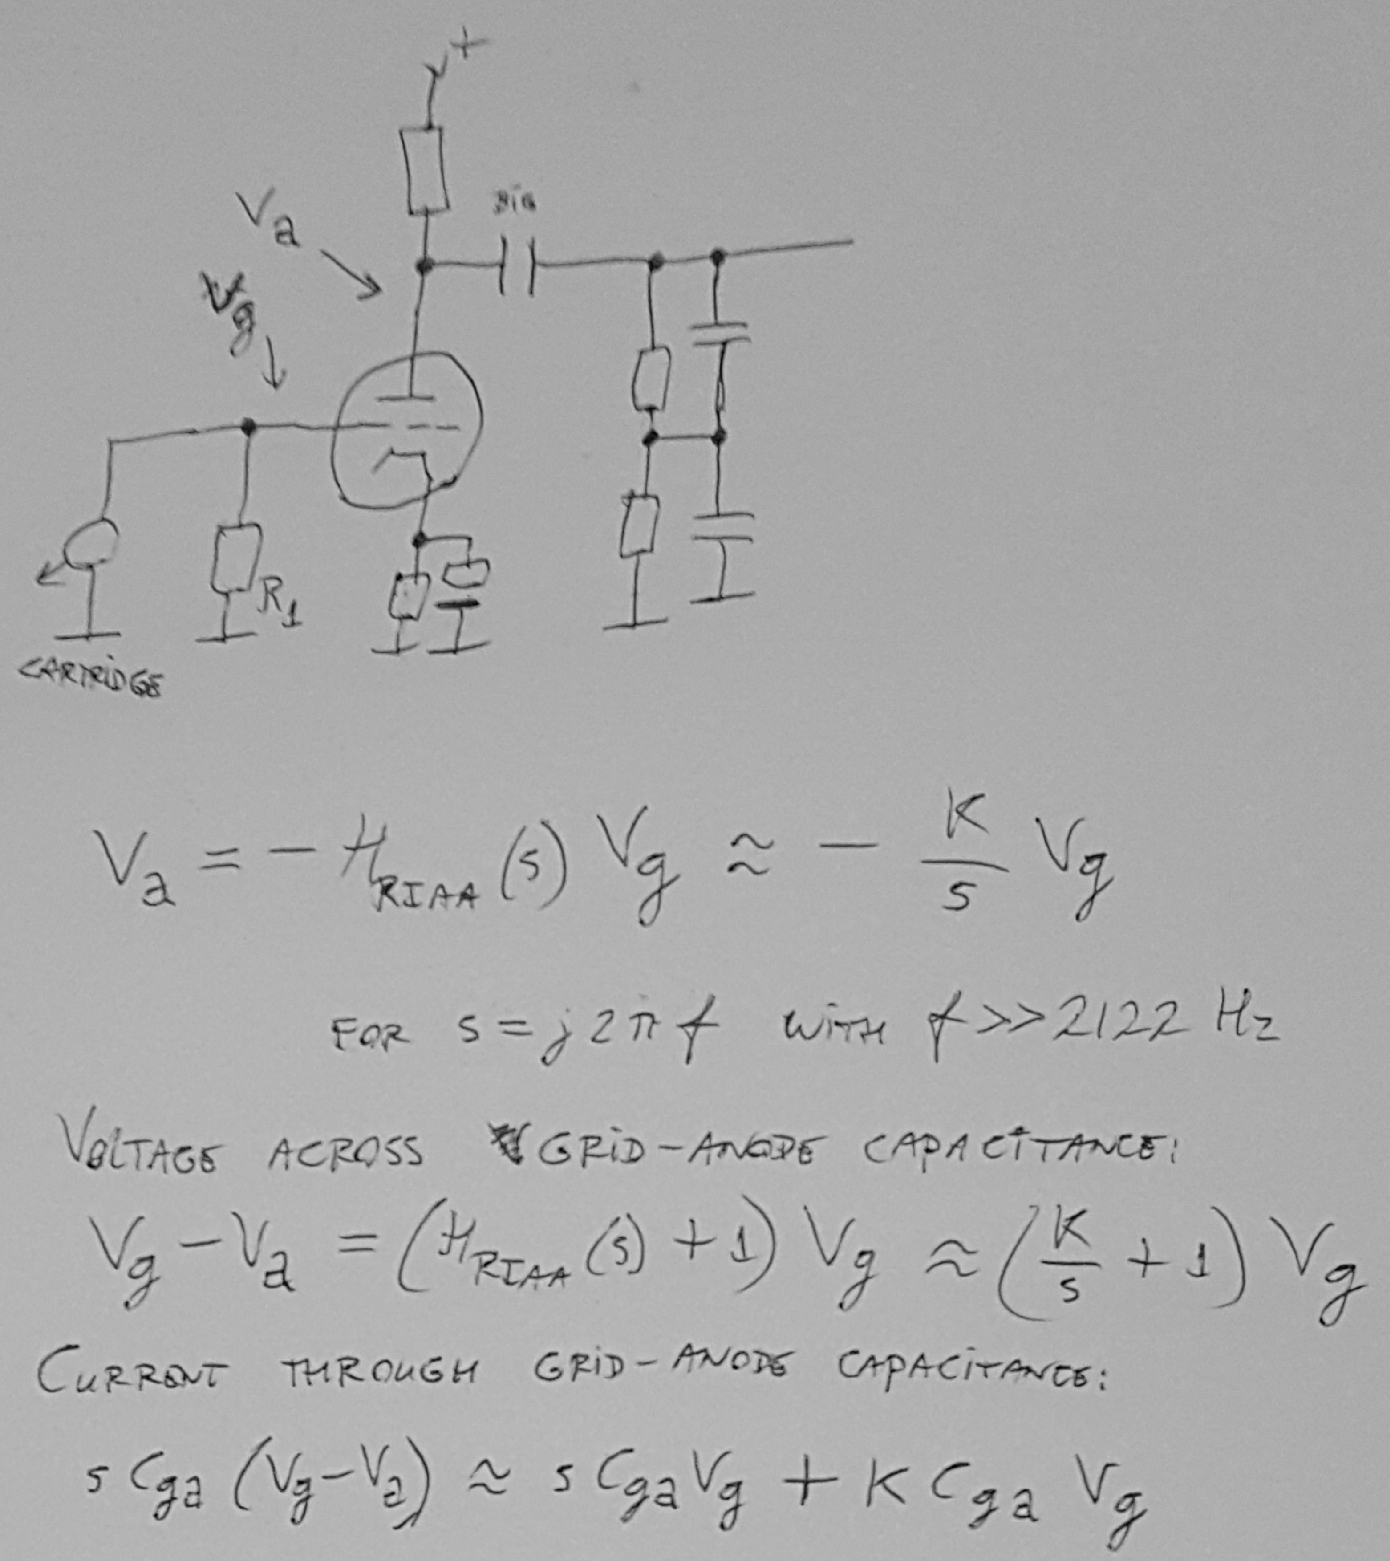 +
BIG
Va
Vg
R1
CARTRIDGE
Va = - HRIAA (s) Vg ≈ - K/s Vg
FOR s = j2πf WITH f >> 2122 Hz
VOLTAGE ACROSS GRID-ANODE CAPACITANCE:
Vg - Va = (HRIAA (s) + 1) Vg ≈ (K/s + 1) Vg
CURRENT THROUGH GRID-ANODE CAPACITANCE:
s Cga (Vg - Va) ≈ s Cga Vg + K Cga Vg